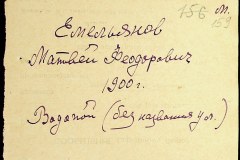 156 М.
159
Емельянов
Матвей Феодорович
1900 г.
Водопой (без названия ул.)